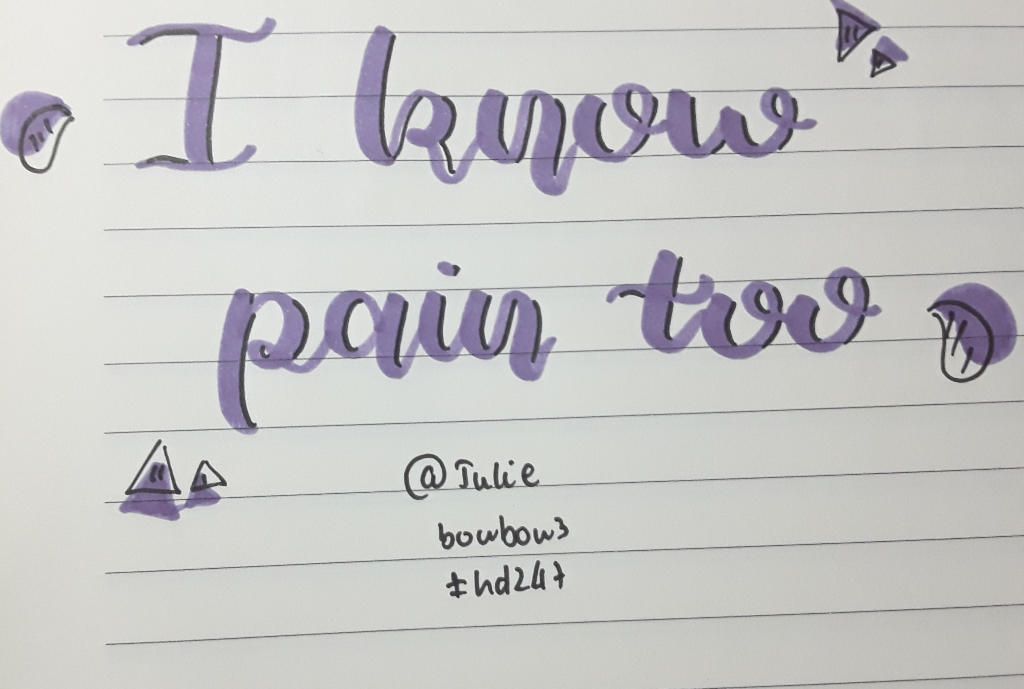 I know
pain too
@Julie
bowbow3